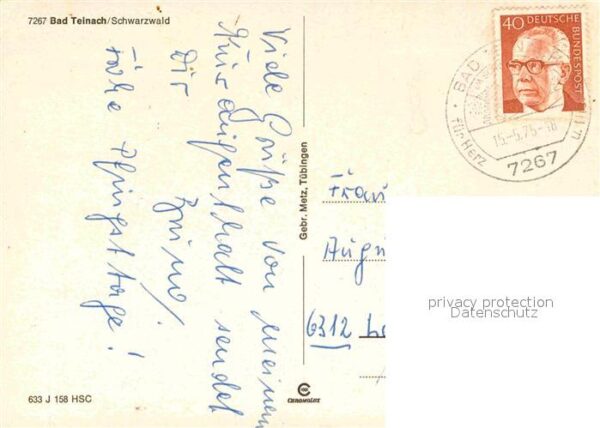 7267 Bad Teinach/Schwarzwald
Viele Grüße von meinem
Kuraufenthalt sendet
Dir
Frohe Pfingsttage!
Gebr. Metz, Tübingen
40 DEUTSCHE
BUNDESPOST
BAD
für Herz
15.-5.75-18
7267
Frau
6312
privacy protection
Datenschutz
633 J 158 HSC
CHROMOLUX